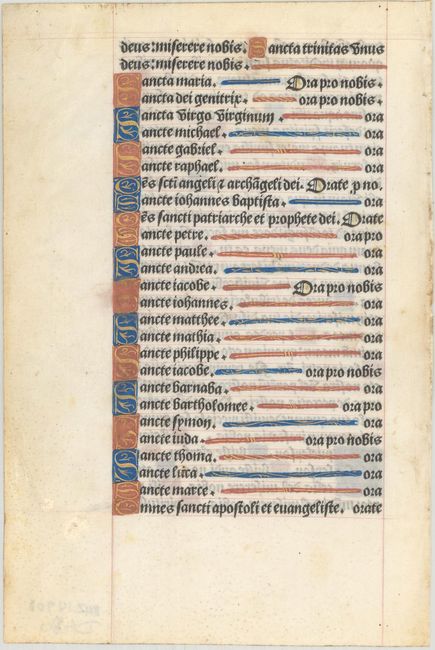 deus: miserere nobis. Sancta trinitas Vnus
deus: miserere nobis.
Sancta maria. Ora pro nobis.
Sancta dei genitrix. ora pro nobis.
Sancta Virgo Virginum. ora
Sancte michael. ora
Sancte gabriel. ora
Sancte raphael. ora
Oẽs scti angeli ⁊ archãgeli dei. Orate p no.
Sancte iohannes baptista. ora
Oẽs sancti patriarche et prophete dei. Orate
Sancte petre. ora pro
Sancte paule. ora
Sancte andrea. ora
Sancte iacobe. Ora pro nobis
Sancte iohannes. ora
Sancte matthee. ora
Sancte mathia. ora
Sancte philippe. ora
Sancte iacobe. ora pro nobis
Sancte barnaba. ora
Sancte bartholomee. ora pro
Sancte symon. ora
Sancte iuda. ora pro nobis
Sancte thoma. ora
Sancte luca. ora
Sancte marce. ora
Omnes sancti apostoli et euangeliste. orate